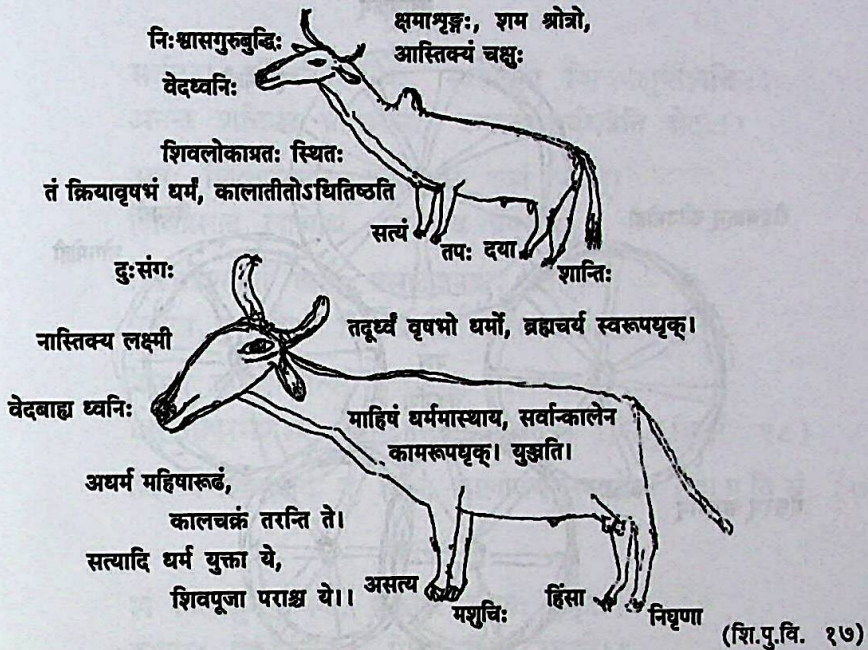 क्षमाशृङ्गः, शम श्रोत्रो,
आस्तिक्यं चक्षुः
निःश्वासगुरुबुद्धिः
वेदध्वनिः
शिवलोकाग्रतः स्थितः
तं क्रियावृषभं धर्मं, कालातीतोऽधितिष्ठति
सत्यं
तपः दया
शान्तिः
दुःसंगः
तदूर्ध्वं वृषभो धर्मो, ब्रह्मचर्य स्वरूपधृक्।
नास्तिक्य लक्ष्मी
वेदबाह्य ध्वनिः
माहिषं धर्ममास्थाय, सर्वान्कालेन
कामरूपधृक्। युञ्जति।
अधर्म महिषारूढं,
कालचक्रं तरन्ति ते।
सत्यादि धर्म युक्ता ये,
शिवपूजा पराश्च ये।।
असत्य
मशुचिः
हिंसा
निघृणा
(शि.पु.वि. १७)